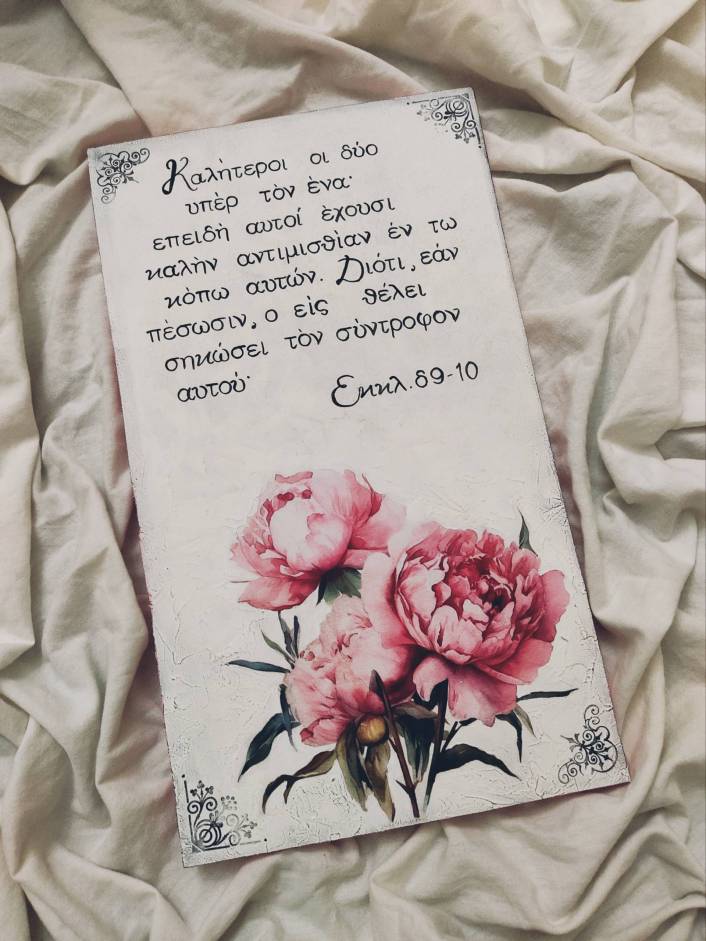 Καλὴτεροι οι δύο
υπὲρ τὸν ὲνα·
επειδὴ αυτοί ὲχουσι
καλὴν αντιμισθίαν ἐν τω
κὸπω αυτών. Διότι, εάν
πὲσωσιν, ο εἱς θέλει
σηκώσει τὸν σὺντροφον
αυτού·
Εκκλ. δ9-10